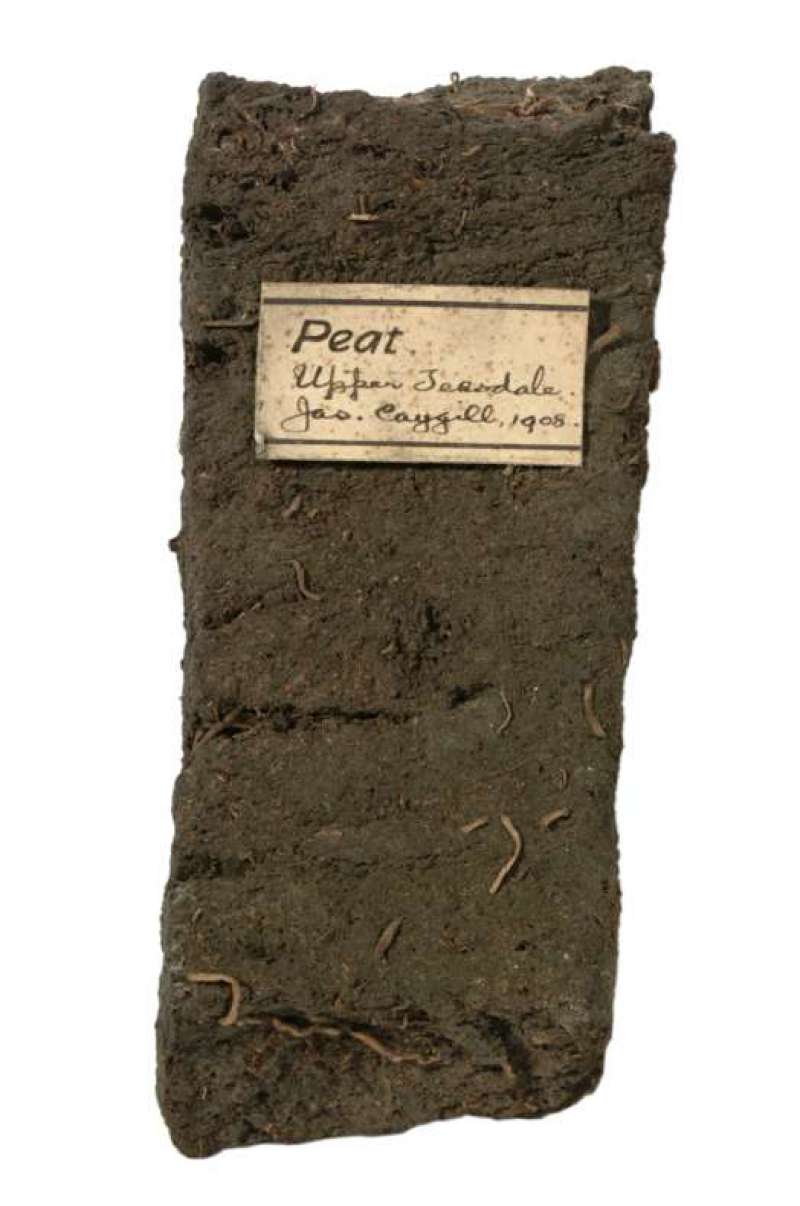 Peat
Upper Teesdale.
Jas. Caygill, 1908.